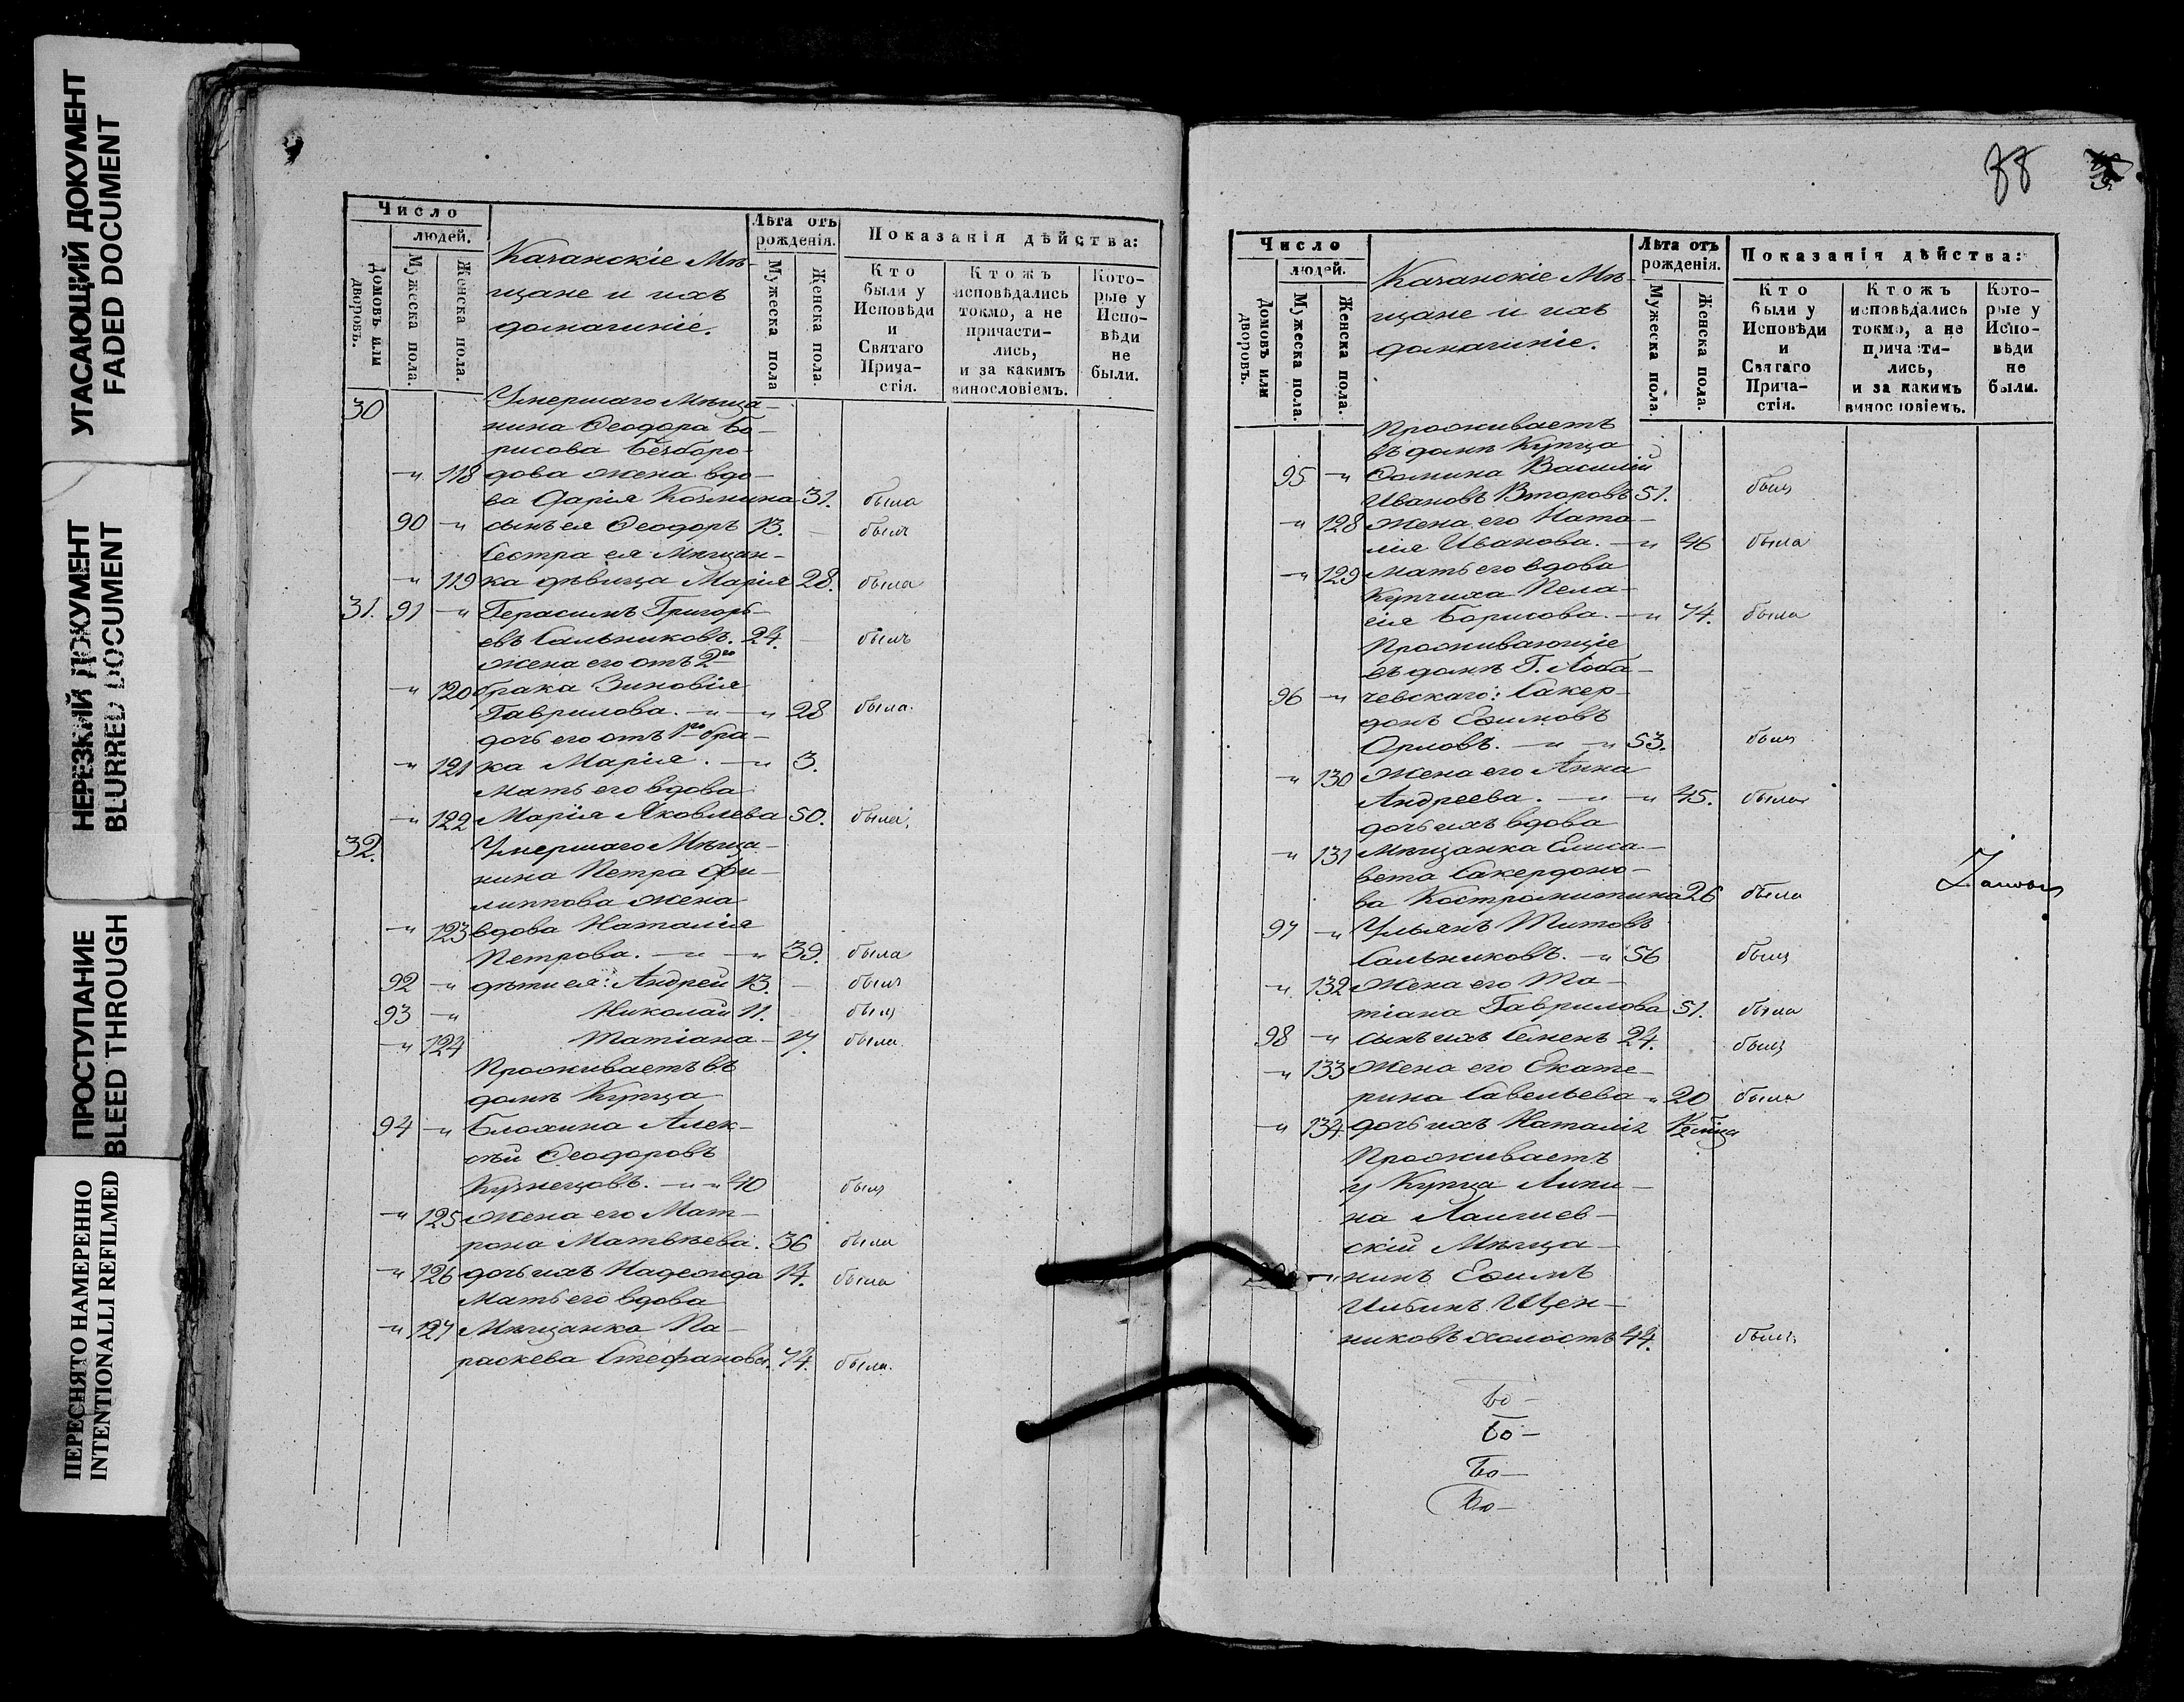 УГАСАЮЩИЙ ДОКУМЕНТ
FADED DOCUMENT
НЕРЕЗКИЙ ДОКУМЕНТ
BLURRED DOCUMENT
ПРОСТУПАНИЕ
BLEED THROUGH
ПЕРЕСНЯТО НАМЕРЕННО
INTENTIONALLI REFILMED
Число
людей.
Домовъ или дворовъ.
Мужеска пола.
Женска пола.
Казанскіе Мѣ-
щане и ихъ
домашніе.
Лѣта отъ рожденія.
Мужеска пола
Женска пола.
Показанія дѣйства:
Кто были у Исповѣди и Святаго Прича-стія.
Ктожъ исповѣдались токмо, а не причасти-лись, и за какимъ винословіемъ.
Кото-рые у Испо-вѣди не были.
30 Умершаго Мѣща-
нина Ѳеодора Бо-
рисова Безборо-
-"- 118 дова жена вдо-
ва Дарія Козмина 31. была
90 -"- сынъ ея Ѳеодоръ 13. - былъ
Сестра ея Мѣщан-
-"- 119 ка дѣвица Марія 28. была
31. 91 -"- Герасимъ Григорь-
евъ Сальниковъ. 24. - былъ
жена его отъ 2го
-"- 120 брака Зиновія
Гаврилова. -"- -"- 28 была.
дочь его отъ 1го бра-
-"- 121 ка Марія. -"- 3.
Мать его вдова
-"- 122 Марія Яковлева 50. была,
32. Умершаго Мѣща-
нина Петра Фи-
липпова жена
-"- 123 вдова Наталія
Петрова. -"- -"- 39. была
92 -"- дѣти ея: Андрей 13. - былъ
93 -"- Николай 11. былъ
-"- 124 Татіана - 7. была.
Проживаетъ въ
домѣ Купца
94 -"- Блохина Алек-
сѣй Ѳеодоровъ
Кузнецовъ. -"- -"- 40 былъ
-"- 125 жена его Мат-
рона Матвѣева. 36 была
-"- 126 дочь ихъ Надежда 14. была
Мать его вдова
-"- 127 Мѣщанка Па-
раскева Стефанова. 74. была.
88
Число
людей.
Домовъ или дворовъ.
Мужеска пола.
Женска пола.
Казанскіе Мѣ-
щане и ихъ
домашніе.
Лѣта отъ рожденія.
Мужеска пола.
Женска пола.
Показанія дѣйства:
Кто были у Исповѣди и Святаго Прича-стія.
Ктожъ исповѣдались токмо, а не причасти-лись, и за какимъ винословіемъ.
Кото-рые у Испо-вѣди не были.
Проживаетъ
въ домѣ Купца
95 -"- Ѳомина Василій
Ивановъ Второвъ 51. былъ
-"- 128 жена его Ната-
лія Иванова. -"- 46 была
-"- 129 мать его вдова
Купчиха Пела-
гія Борисова. -"- 74. была
Проживающіе
въ домѣ Г. Лоба-
96 -"- чевскаго: Сакер-
донъ Еѳимовъ
Орловъ. -"- -"- 53. былъ
-"- 130 жена его Анна
Андреева. -"- -"- 45. была
дочь ихъ вдова
-"- 131 Мѣщанка Елиса-
вета Сакердоно-
ва Костромитина 26 была
97 -"- Ульянъ Титовъ
Сальниковъ. -"- 56 былъ
-"- 132 жена его Та-
тіана Гаврилова 51. была
98 -"- сынъ ихъ Семенъ 24. былъ
-"- 133 жена его Екате-
рина Савельева -"- 20 была
-"- 134 дочь ихъ Наталія 1/2 года
Проживаетъ
у Купца Липи-
на Лаишев-
скій Мѣща-
-"- нинъ Еѳимъ
Ильинъ Щен-
никовъ холостъ 44. былъ
Бо-
Бо-
Бо-
Бо-